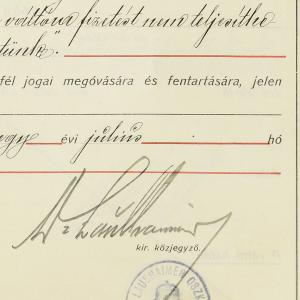 váltóra fizetést nem teljesíthe
tünk".
fél jogai megóvására és fentartására, jelen
évi július hó
Dr
kir. közjegyző.